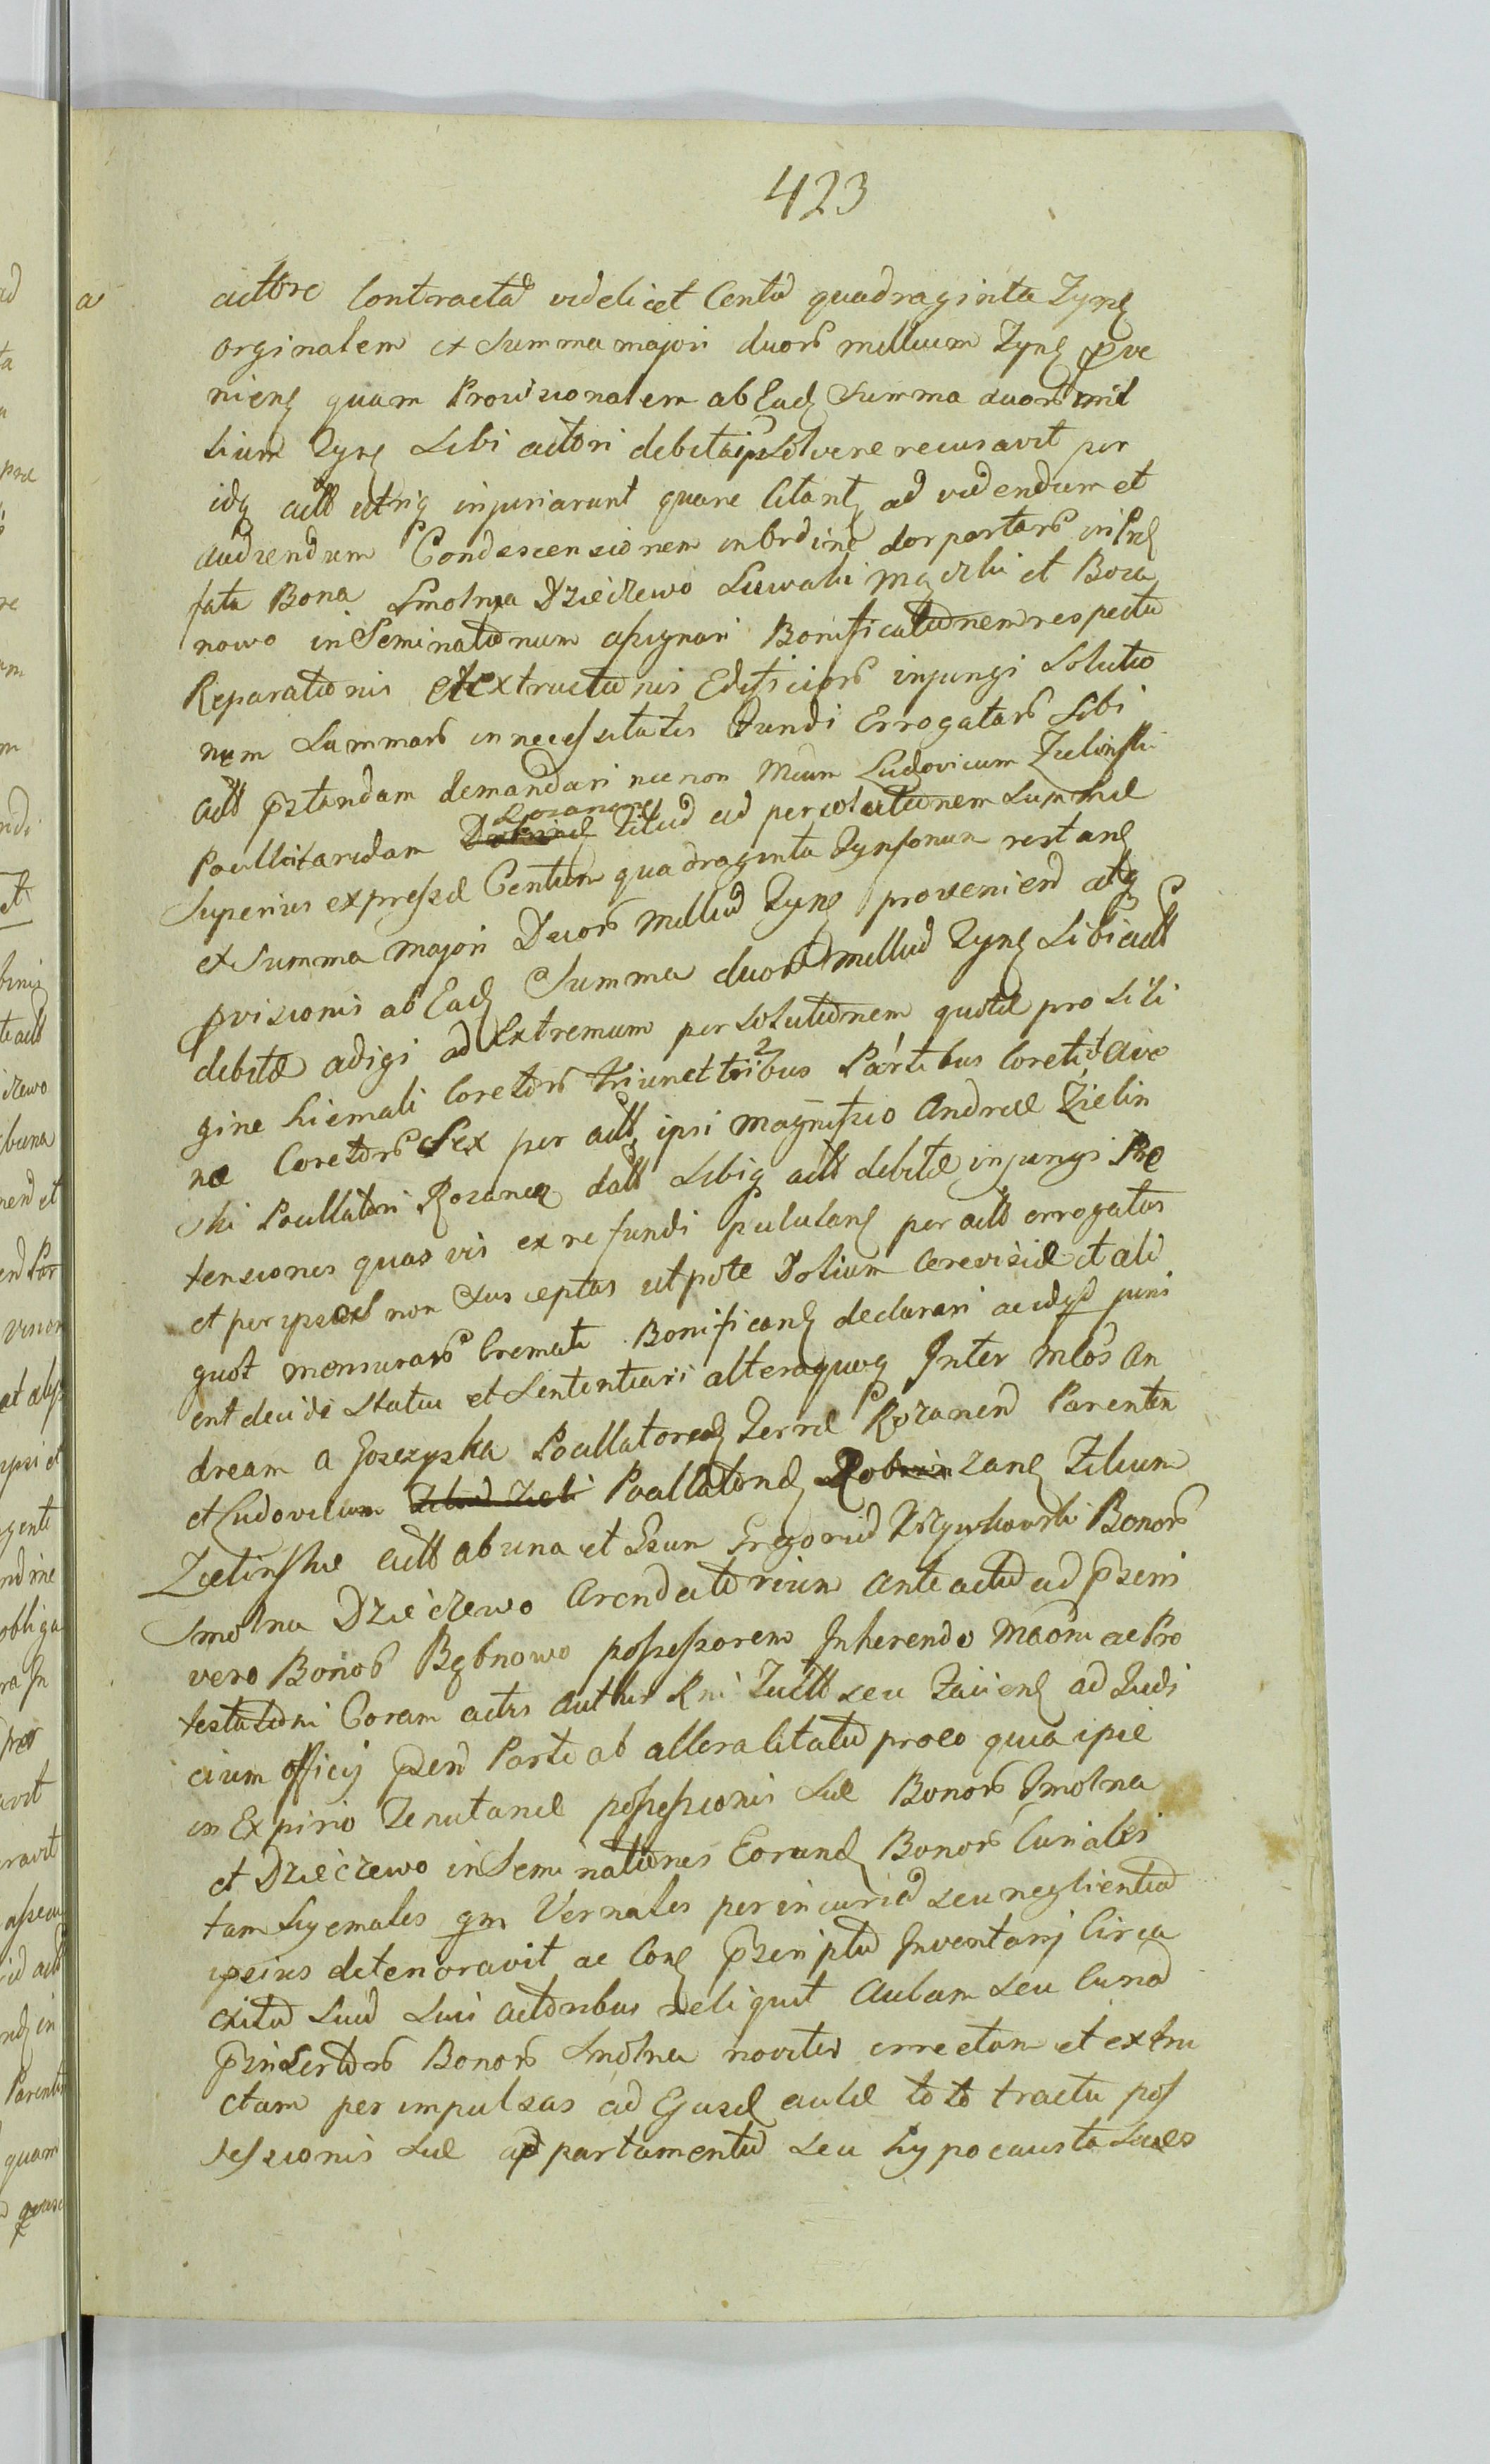 423
a
actore Contractā videlicet Centū quadraginta Zyn
orginalem ex Summa majori duor millium Zyn prve
nien quam Provisionalem ab Ead Summa duor mil
lium Zyn Sibi actori debita solvere recusavit per
idq act injuriarunt quare Citant ad videndum et
audiendum Condescensionem in Ordine ad
fata Bona Smolna Dziećzewo Suwaki et Boza
nowo inSeminationum assignari Bonificationem respectu
Reparationis et extructionis Edificior injungi Solutio
nem Summar in necessitates Fundi Errogatar Sibi
act pstandam demandari nec non Mcum Ludovicum Zielinski
Rozanens
Pocillatoridam Zieliū ad persolutionem Summæ
Superius expressæ Centum quadraginta Zynfonum restan
ex Summa majori Duor Milliū Zyn provenien atq
pvisionis ab Ead Summa duor milliū Zyn Sibi act
debitæ adigi ad Extremum persolutionem quotæ pro Sili
gine hiemali Coretor trium et tribus Partibus Coreti Ave
næ Coretor Sex per act ipsi Magnifico Andreæ Zielin
ski Pocillatori Rozanen dat Sibiq act debitæ injungi Præ
tensiones quas vis ex re fundi pululan per act errogatas
et per ipsos non Susceptas utpote Dolium Cerevisiæ et ali
quot mensurar Cremati Bonifican declarari ac idqd juris
ent decidi Statui et Sententiari alteraquoq Inter Mcos An
dream a Goszczyska Pocillatorem Terræ Rozanen Parentem
et Ludovicum Pocillatorid zan Filium
Zielinskie act ab una et Gsum Gregoriū Bonor
Smolna Dziećzewo Arendatorium ante actū ad pseni
vero Bonor Bębnowo possessorem Inherendo Mãom ac Pro
testationi Coram actis ad Judi
cium officij psen Parte ab altera Citatū pro eo quia ipse
in Expirio Tenutariæ possessionis Suæ Bonor Smolna
et Dziećzewo inSeminationes Eorund Bonor Curiales
tam hyemales qm Vernales per incuriā seu neglientiā
ipsius deterioravit ac Con pscriptū Inventarij Circa
exitū Suū Suis actoribus reliquit Aulam Seu Curiā
pinsertor Bonor Smolna noviter errectam et extru
ctam per impulsas ad Ejusd aulæ toto tractu pos
sessionis Suæ appartamentū seu hypocausta Sues